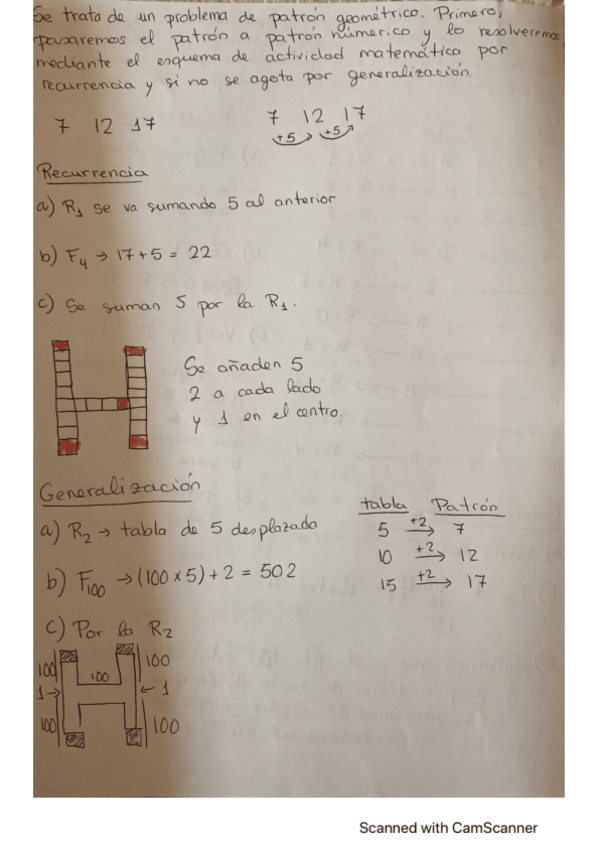 Se trata de un problema de patrón geométrico. Primero,
pasaremos el patrón a patrón númerico y lo resolveremos
mediante el esquema de actividad matemática por
recurrencia y si no se agota por generalización.
7 12 17
7 12 17
+5 +5
Recurrencia
a) R1 se va sumando 5 al anterior
b) F4 → 17+5 = 22
c) Se suman 5 por la R1.
Se añaden 5
2 a cada lado
y 1 en el centro.
Generalización
a) R2 → tabla de 5 desplazada
b) F100 → (100 x 5) + 2 = 502
c) Por la R2
tabla Patrón
5 +2→ 7
10 +2→ 12
15 +2→ 17
100 100 100
1→ ←1
100 100
Scanned with CamScanner